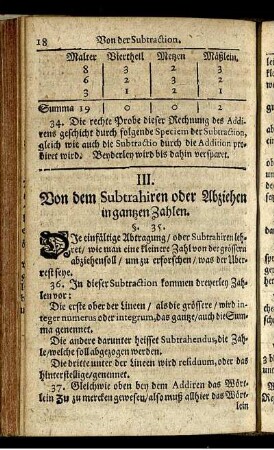 18 Von der Subtraction.
Malter Viertheil Metzen Mäßlein.
8 3 2 3
6 2 3 2
3 1 2 1
Summa 19 0 0 2
34. Die rechte Probe dieser Rechnung des Addi-
rens geschicht durch folgende Speciem der Subtraction,
gleich wie auch die Subtractio durch die Addition pro-
biret wird. Beyderley wird bis dahin versparet.
III.
Von dem Subtrahiren oder Abziehen
in gantzen Zahlen.
§. 35.
Die einfältige Abtragung / oder Subtrahiren leh-
ret / wie man eine kleinere Zahl von der grössern
abziehen soll / um zu erforschen / was der Uber-
rest seye.
36. In dieser Subtraction kommen dreyerley Zah-
len vor:
Die erste ober der Lineen / als die grössere / wird in-
teger numerus oder integrum, das gantze / auch die Sum-
ma genennet.
Die andere darunter heisset Subtrahendus, die Zah-
le / welche soll abgezogen werden.
Die dritte unter der Lineen wird residuum, oder das
hinterstellige / genennet.
37. Gleichwie oben bey dem Addiren das Wört-
lein Zu zu mercken gewesen / also muß allhier das Wört-
lein